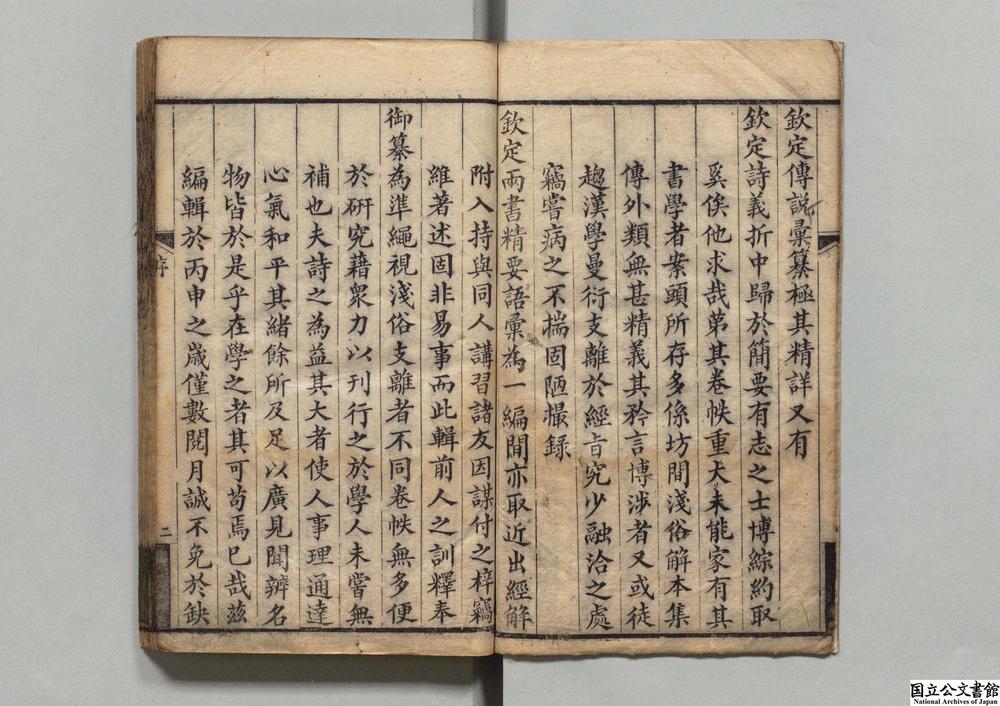 欽定傳說彙纂極其精詳又有
欽定詩義折中歸於簡要有志之士博綜約取
奚俟他求哉第其卷帙重大未能家有其
書學者案頭所存多係坊間淺俗解本集
傳外類無甚精義其矜言博涉者又或徒
趨漢學曼衍支離於經旨究少融洽之處
竊嘗病之不揣固陋撮録
欽定兩書精要語彙為一編間亦取近出經解
附入持與同人講習諸友因謀付之梓竊
維著述固非易事而此輯前人之訓釋奉
御纂為準繩視淺俗支離者不同卷帙無多便
於研究藉衆力以刊行之於學人未嘗無
補也夫詩之為益其大者使人事理通達
心氣和平其緒餘所及足以廣見聞辨名
物皆於是乎在學之者其可苟焉巳哉茲
編輯於丙申之歳僅數閱月誠不免於缺
序
二
国立公文書館
National Archives of Japan